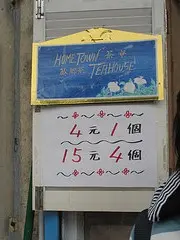 HOMETOWN 茶座
故鄉茶座 TEAHOUSE
4元1個
15元4個